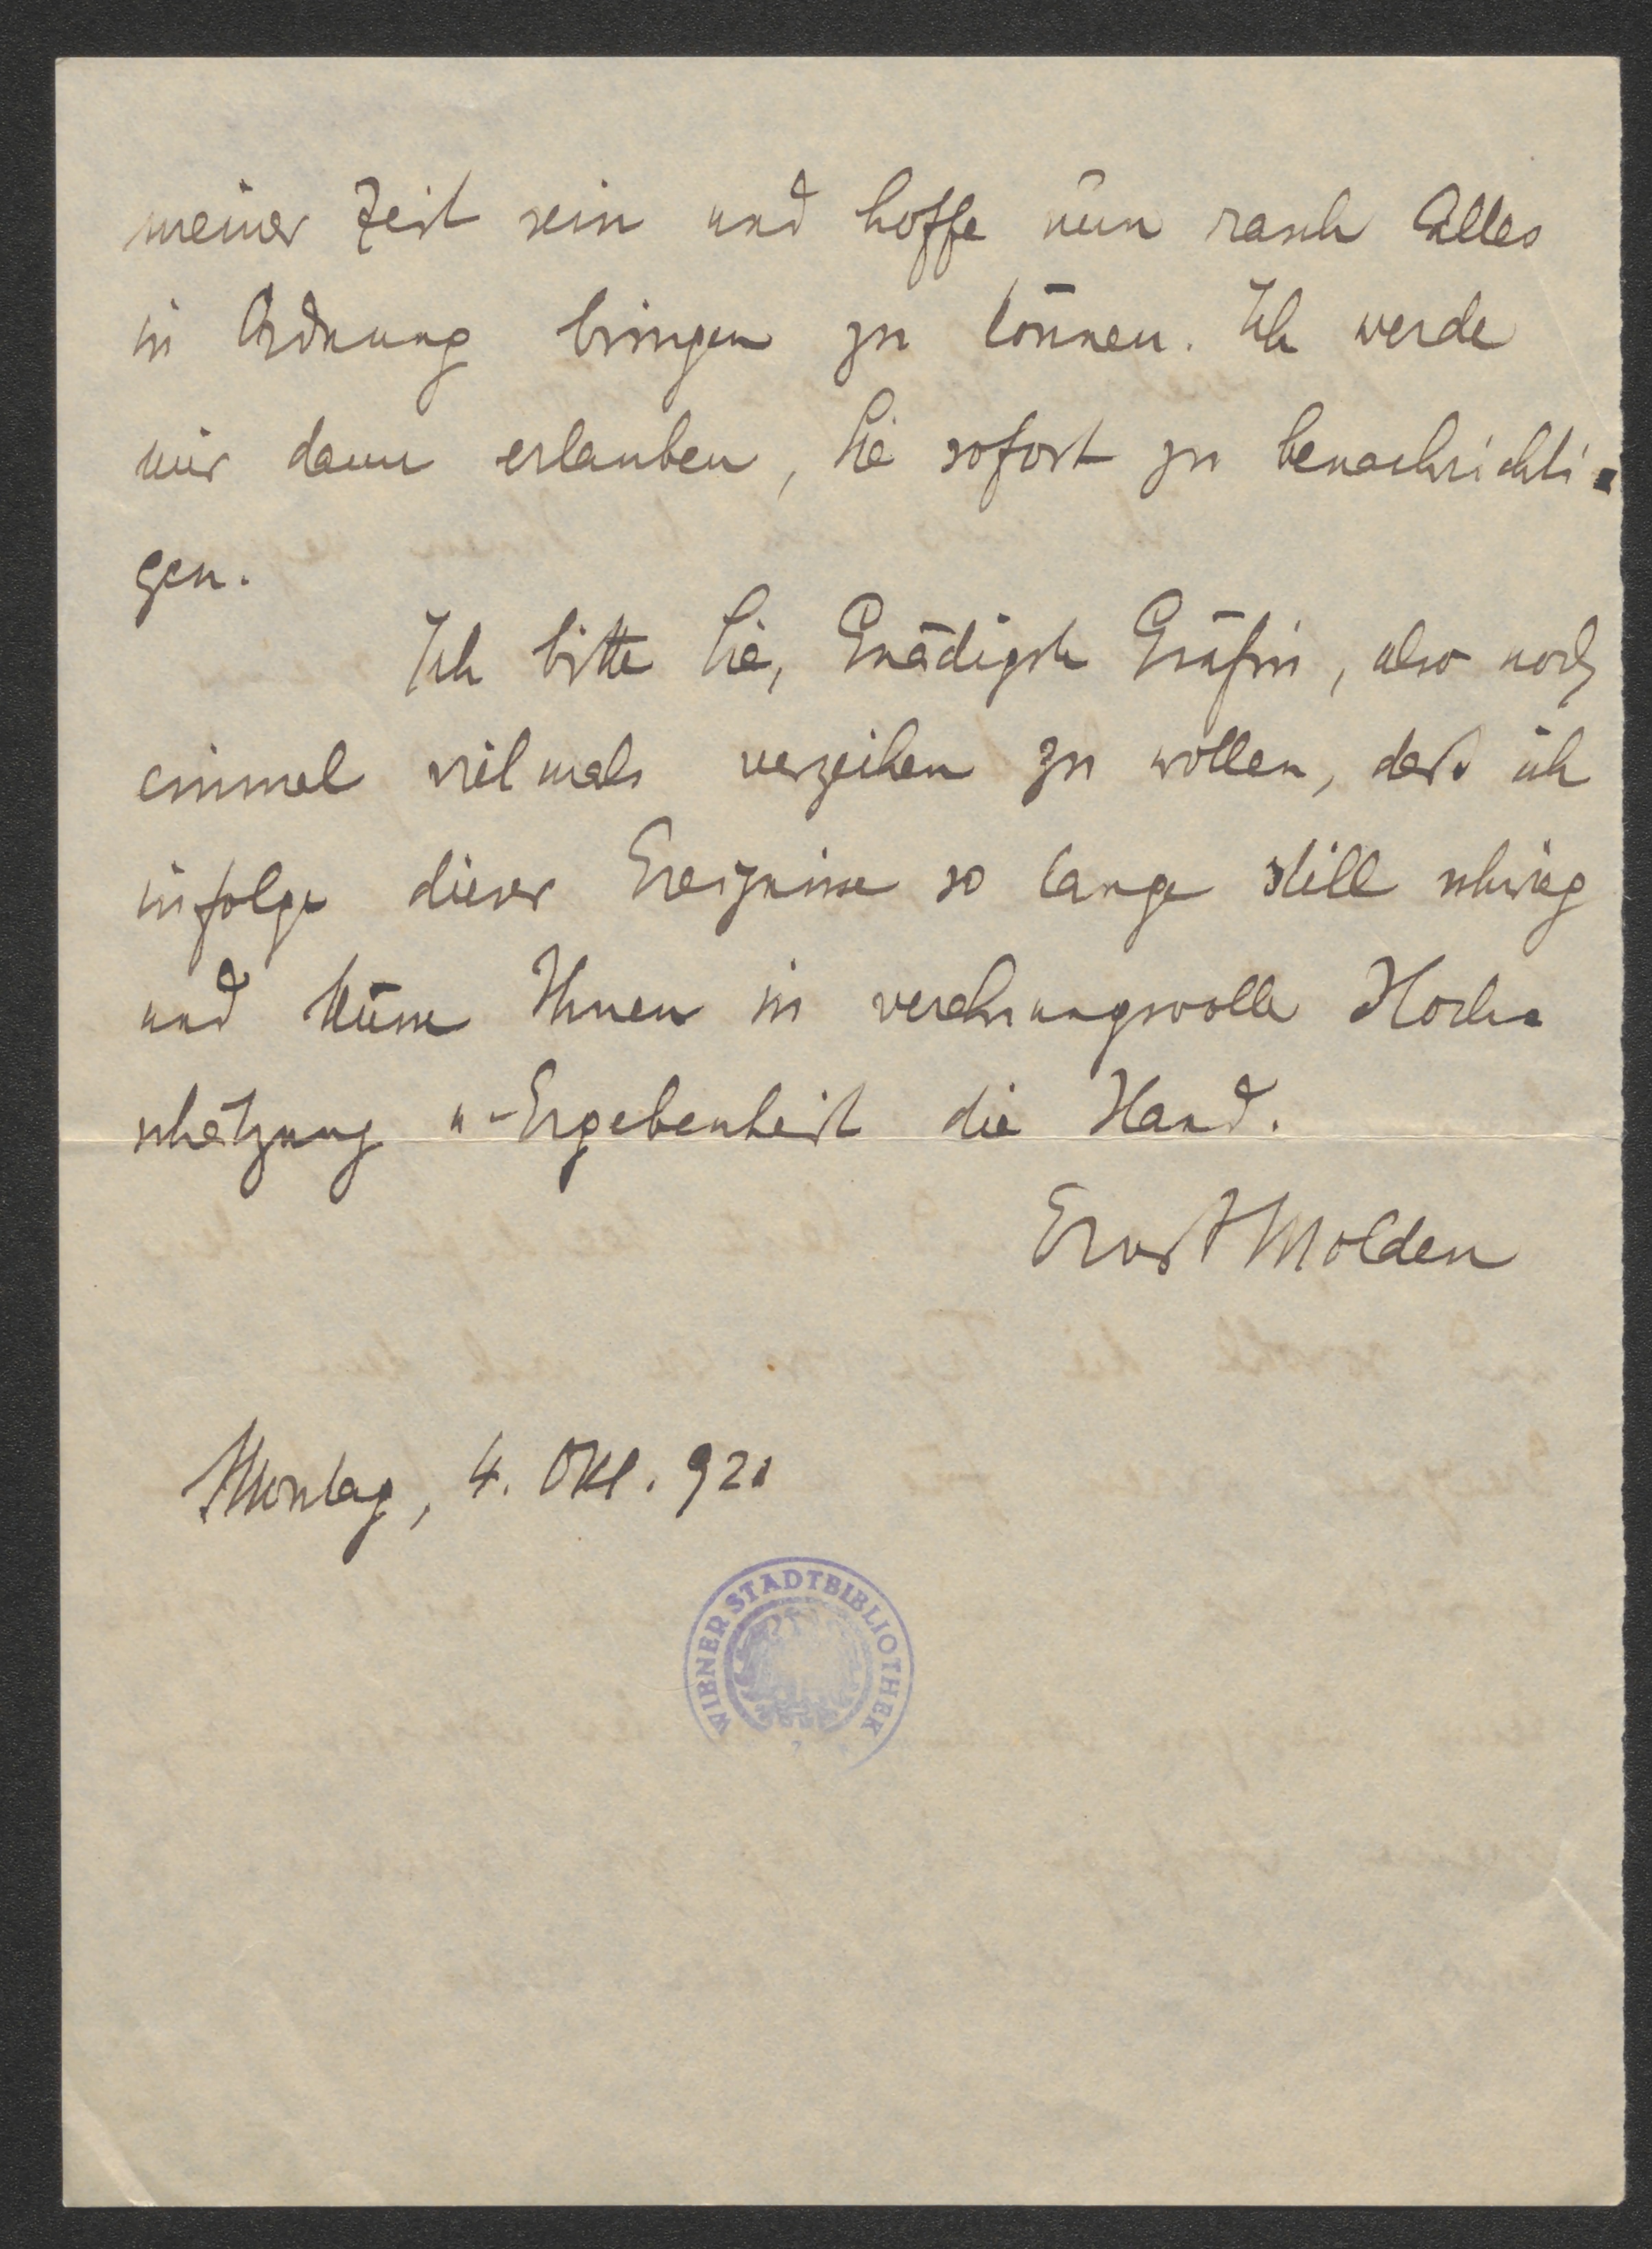 meiner Zeit sein und hoffe nun rasch Alles
in Ordnung bringen zu können. Ich werde
mir dann erlauben, Sie sofort zu benachrichti-
gen.
Ich bitte Sie, Gnädigste Gräfin, also noch
einmal vielmals verzeihen zu wollen, dass ich
infolge dieser Ereignisse so lange still schwieg
und küsse Ihnen in verehrungsvoller Hoch-
schätzung u. Ergebenheit die Hand.
Ernst Molden
Montag, 4. Okt. 920
WIENER STADTBIBLIOTHEK